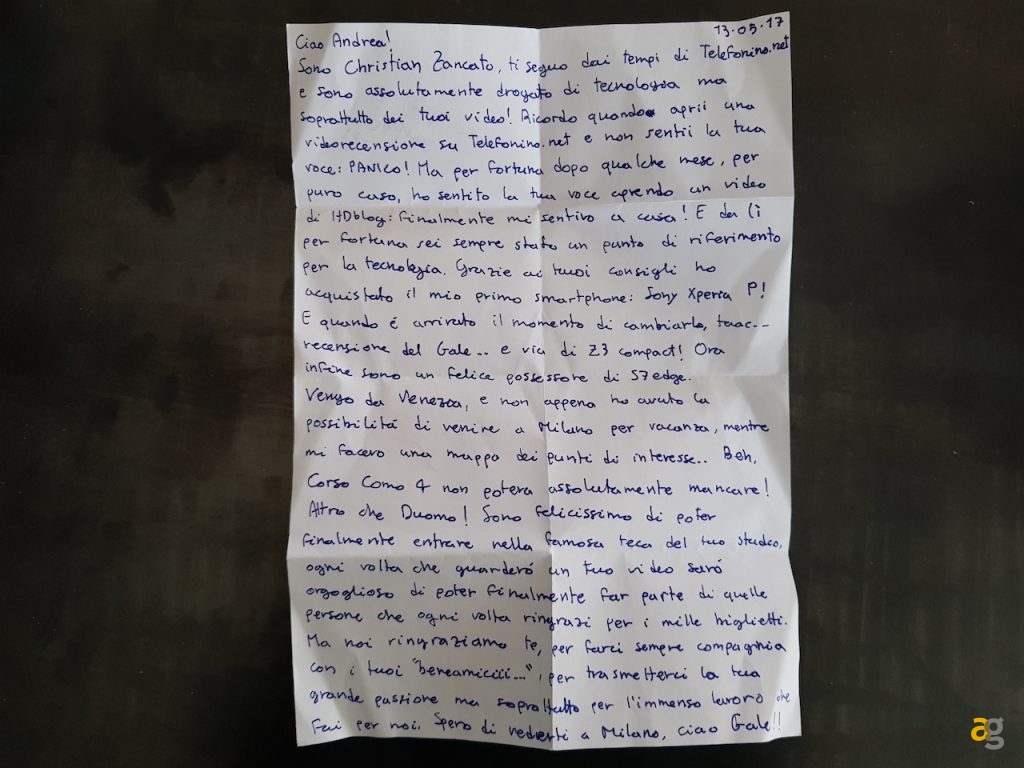 13.05.17
Ciao Andrea!
Sono Christian Zancato, ti seguo dai tempi di Telefonino.net
e sono assolutamente drogato di tecnologia ma
soprattutto dei tuoi video! Ricordo quando aprii una
videorecensione su Telefonino.net e non sentii la tua
voce: PANICO! Ma per fortuna dopo qualche mese, per
puro caso, ho sentito la tua voce aprendo un video
di HDblog: finalmente mi sentivo a casa! E da lì
per fortuna sei sempre stato un punto di riferimento
per la tecnologia. Grazie ai tuoi consigli ho
acquistato il mio primo smartphone: Sony Xperia P!
E quando é arrivato il momento di cambiarlo, taac--
recensione del Gale.. e via di Z3 compact! Ora
infine sono un felice possessore di S7 edge.
Vengo da Venezia, e non appena ho avuto la
possibilitá di venire a Milano per vacanza, mentre
mi facevo una mappa dei punti di interesse.. Beh,
Corso Como 4 non poteva assolutamente mancare!
Altro che Duomo! Sono felicissimo di poter
finalmente entrare nella famosa teca del tuo studio,
ogni volta che guarderó un tuo video saró
orgoglioso di poter finalmente far parte di quelle
persone che ogni volta ringrazi per i mille biglietti.
Ma noi ringraziamo te, per farci sempre compagnia
con i tuoi "beneamiciii...", per trasmetterci la tua
grande passione ma soprattutto per l'immenso lavoro che
fai per noi. Spero di vederti a Milano, ciao Gale!!
ag